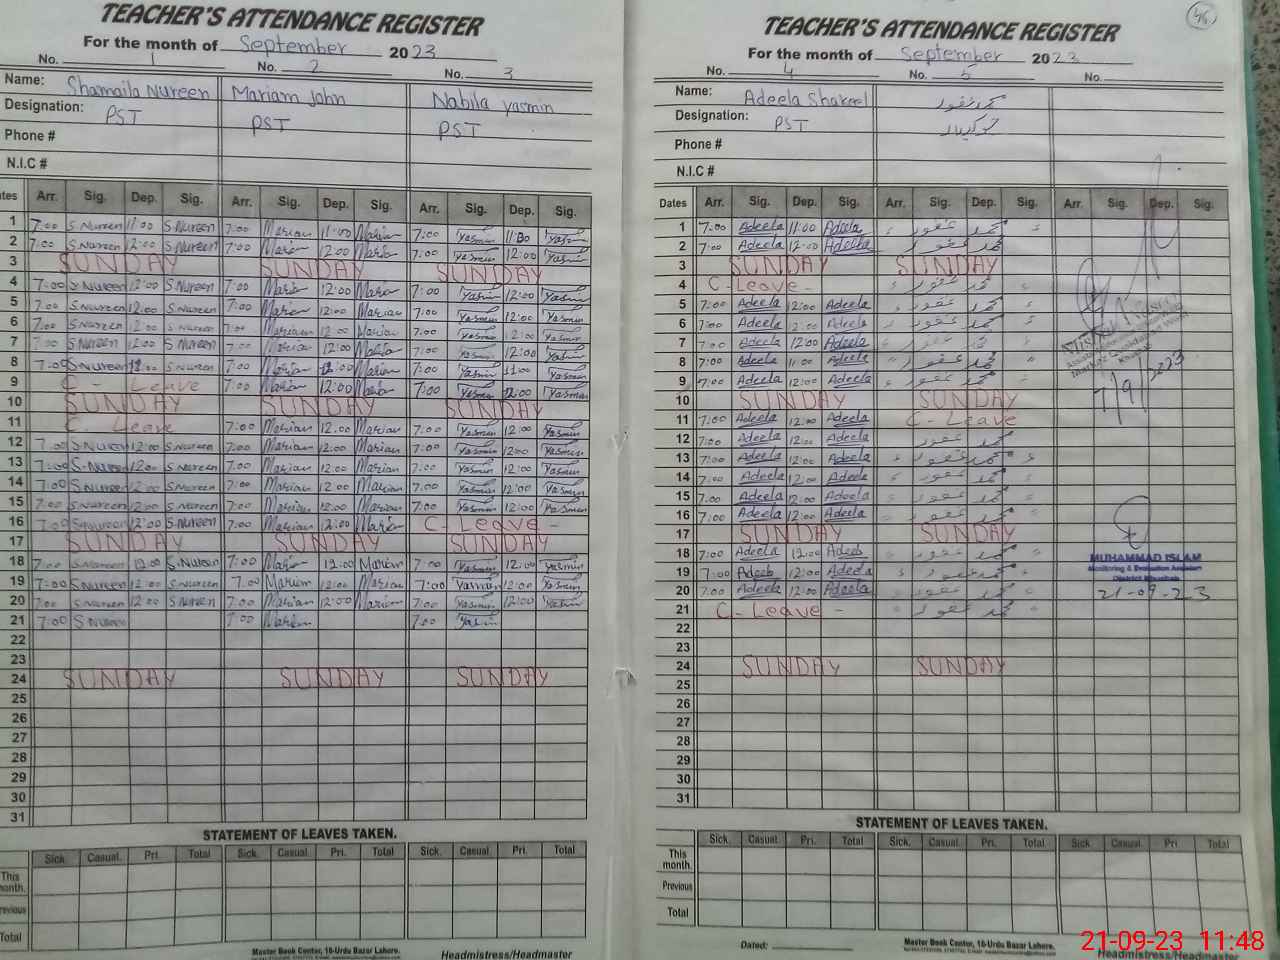 TEACHER'S ATTENDANCE REGISTER
For the month of September 2023
No. 1 No. 2 No. 3
Name: Shamaila Nureen Mariam John Nabila yasmin
Designation: PST PST PST
Phone #
N.I.C #
Arr. Sig. Dep. Sig. Arr. Sig. Dep. Sig. Arr. Sig. Dep. Sig.
1 7:00 S.Nureen 11:00 S.Nureen 7:00 Mariam 11:00 Mariam 7:00 Yasmin 11:00 Yasmin
2 7:00 S.Nureen 12:00 S.Nureen 7:00 Mariam 12:00 Mariam 7:00 Yasmin 12:00 Yasmin
3 SUNDAY SUNDAY SUNDAY
4 7:00 S.Nureen 12:00 S.Nureen 7:00 Mariam 12:00 Mariam 7:00 Yasmin 12:00 Yasmin
5 7:00 S.Nureen 12:00 S.Nureen 7:00 Mariam 12:00 Mariam 7:00 Yasmin 12:00 Yasmin
6 7:00 S.Nureen 12:00 S.Nureen 7:00 Mariam 12:00 Mariam 7:00 Yasmin 12:00 Yasmin
7 7:00 S.Nureen 12:00 S.Nureen 7:00 Mariam 12:00 Mariam 7:00 Yasmin 12:00 Yasmin
8 7:00 S.Nureen S.Nureen 7:00 Mariam Mariam 7:00 Yasmin 11:00 Yasmin
9 C - Leave 7:00 Mariam 12:00 Mariam 7:00 Yasmin 12:00 Yasmin
10 SUNDAY SUNDAY SUNDAY
11 C. Leave 7:00 Mariam 12:00 Mariam 7:00 Yasmin 12:00 Yasmin
12 7:00 S.Nureen 12:00 S.Nureen 7:00 Mariam 12:00 Mariam 7:00 Yasmin 12:00 Yasmin
13 7:00 S.Nureen 12:00 S.Nureen 7:00 Mariam 12:00 Mariam 7:00 Yasmin 12:00 Yasmin
14 7:00 S.Nureen 12:00 S.Nureen 7:00 Mariam 12:00 Mariam 7:00 Yasmin 12:00 Yasmin
15 7:00 S.Nureen 12:00 S.Nureen 7:00 Mariam 12:00 Mariam 7:00 Yasmin 12:00 Yasmin
16 7:00 S.Nureen 12:00 S.Nureen 7:00 Mariam 12:00 Mariam C - Leave -
17 SUNDAY SUNDAY SUNDAY
18 7:00 S.Nureen 12:00 S.Nureen 7:00 Mariam 12:00 Mariam 7:00 Yasmin 12:00 Yasmin
19 7:00 S.Nureen 12:00 S.Nureen 7:00 Mariam 12:00 Mariam 7:00 Yasmin 12:00 Yasmin
20 7:00 S.Nureen 12:00 S.Nureen 7:00 Mariam 12:00 Mariam 7:00 Yasmin 12:00 Yasmin
21 7:00 S.Nureen 7:00 Mariam 7:00 Yasmin
22
23
24 SUNDAY SUNDAY SUNDAY
25
26
27
28
29
30
31
STATEMENT OF LEAVES TAKEN.
Sick. Casual. Pri. Total Sick. Casual. Pri. Total Sick. Casual. Pri. Total
This
month.
Previous
Total
Master Book Center, 16-Urdu Bazar Lahore.
Headmistress/Headmaster
46
TEACHER'S ATTENDANCE REGISTER
For the month of September 2023
No. 4 No. 5 No.
Name: Adeela Shakeel محمد غفور
Designation: PST چوکیدار
Phone #
N.I.C #
Dates Arr. Sig. Dep. Sig. Arr. Sig. Dep. Sig. Arr. Sig. Dep. Sig.
1 7:00 Adeela 11:00 Adeela محمد غفور
2 7:00 Adeela 12:00 Adeela محمد غفور
3 SUNDAY SUNDAY
4 C - Leave - محمد غفور
5 7:00 Adeela 12:00 Adeela محمد غفور
6 7:00 Adeela 12:00 Adeela محمد غفور
7 7:00 Adeela 12:00 Adeela محمد غفور
8 7:00 Adeela 11:00 Adeela محمد غفور
9 7:00 Adeela 12:00 Adeela محمد غفور
10 SUNDAY SUNDAY
11 7:00 Adeela 12:00 Adeela C - Leave
12 7:00 Adeela 12:00 Adeela محمد غفور
13 7:00 Adeela 12:00 Adeela محمد غفور
14 7:00 Adeela 12:00 Adeela محمد غفور
15 7:00 Adeela 12:00 Adeela محمد غفور
16 7:00 Adeela 12:00 Adeela محمد غفور
17 SUNDAY SUNDAY
18 7:00 Adeela 12:00 Adeela محمد غفور
19 7:00 Adeela 12:00 Adeela محمد غفور
20 7:00 Adeela 12:00 Adeela محمد غفور
21 C - Leave - محمد غفور
22
23
24 SUNDAY SUNDAY
25
26
27
28
29
30
31
7/9/2023
MUHAMMAD ISLAM
Monitoring & Evaluation Assistant
District Khushab
21-09-23
STATEMENT OF LEAVES TAKEN.
Sick. Casual. Pri. Total Sick. Casual. Pri. Total Sick. Casual. Pri. Total
This
month.
Previous
Total
Dated:
Master Book Center, 16-Urdu Bazar Lahore.
Headmistress/Headmaster
21-09-23 11:48